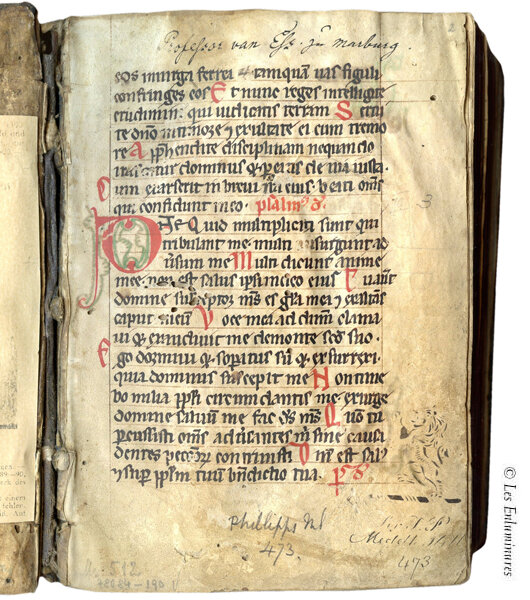 Professor van Eſs zu Marburg.
eos in uirga ferrei ⁊ tanquā uas figuli
confringes eos Et nunc reges intelligite
erudimini qui iudicatis terram Serui
te dn̄o in timore ⁊ exultate ei cum tremo
re Apprehendite disciplinam ne quando
dominus
exarserit in breui eius beati om̄s
qui confidunt in eo. psalmꝰ d.
Dn̄e Quid multiplicati sunt qui
tribulant me multi insurgunt ad
uersum me Multi dicunt anime
mee non est salus ipsi in deo eius Tu aut̄
domine susceptor ms̄ es gl̄a mea ⁊ exaltās
caput meum Voce mea ad dn̄m clama
ui ⁊ exaudiuit me de monte sc̄o suo
Ego dormiui ⁊ soporatus sū ⁊ exsurrexi
quia dominus suscepit me Non time
bo milia pp̄li circumdantis me exurge
domine saluum me fac ds̄ ms̄ Qm̄ tu
percussisti om̄s aduersantes m̄ sine causa
dentes peccatorum contriuisti Dn̄i est salꝰ
⁊ super pp̄lm tuum bn̄dictio tua. ps̄
3
Phillipps MS
473
473
512
© Les Enluminures